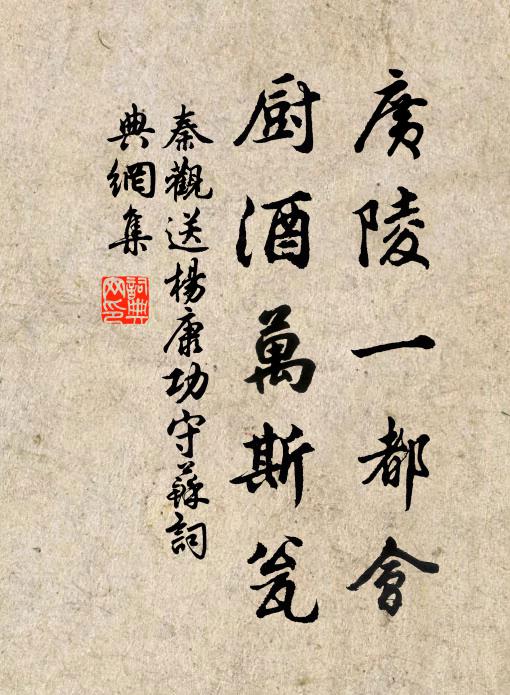 廣陵一都會
厨酒萬斯瓮
秦觀送楊康功守蘇詞
典網集
詞典
网印